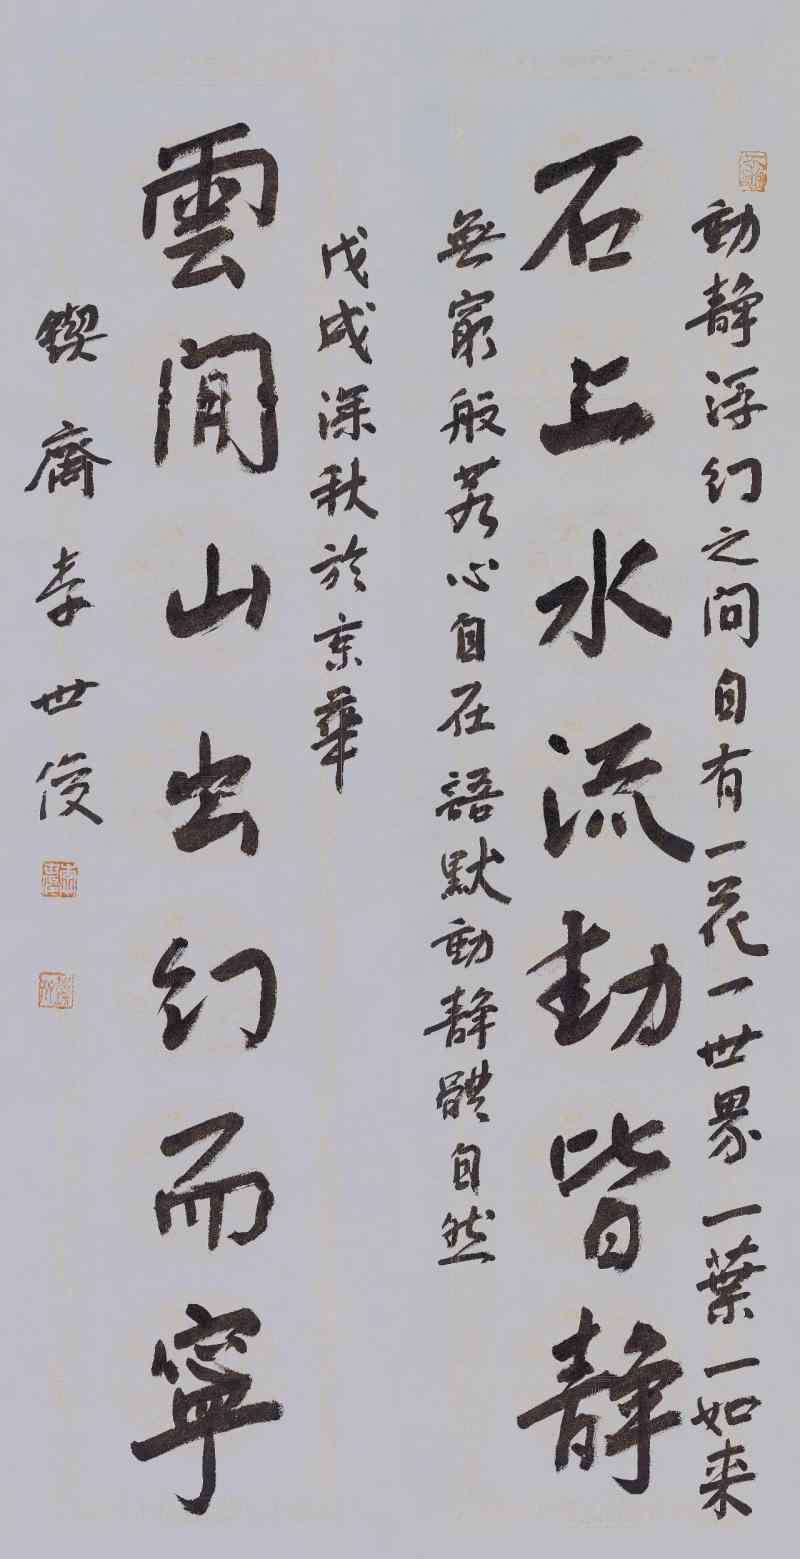 動静浮幻之间自有一花一世界一葉一如来
石上水流動皆静
無窮般若心自在語默動静體自然
戊戌深秋於京華
雲间山出幻而寧
鍥齋李世俊